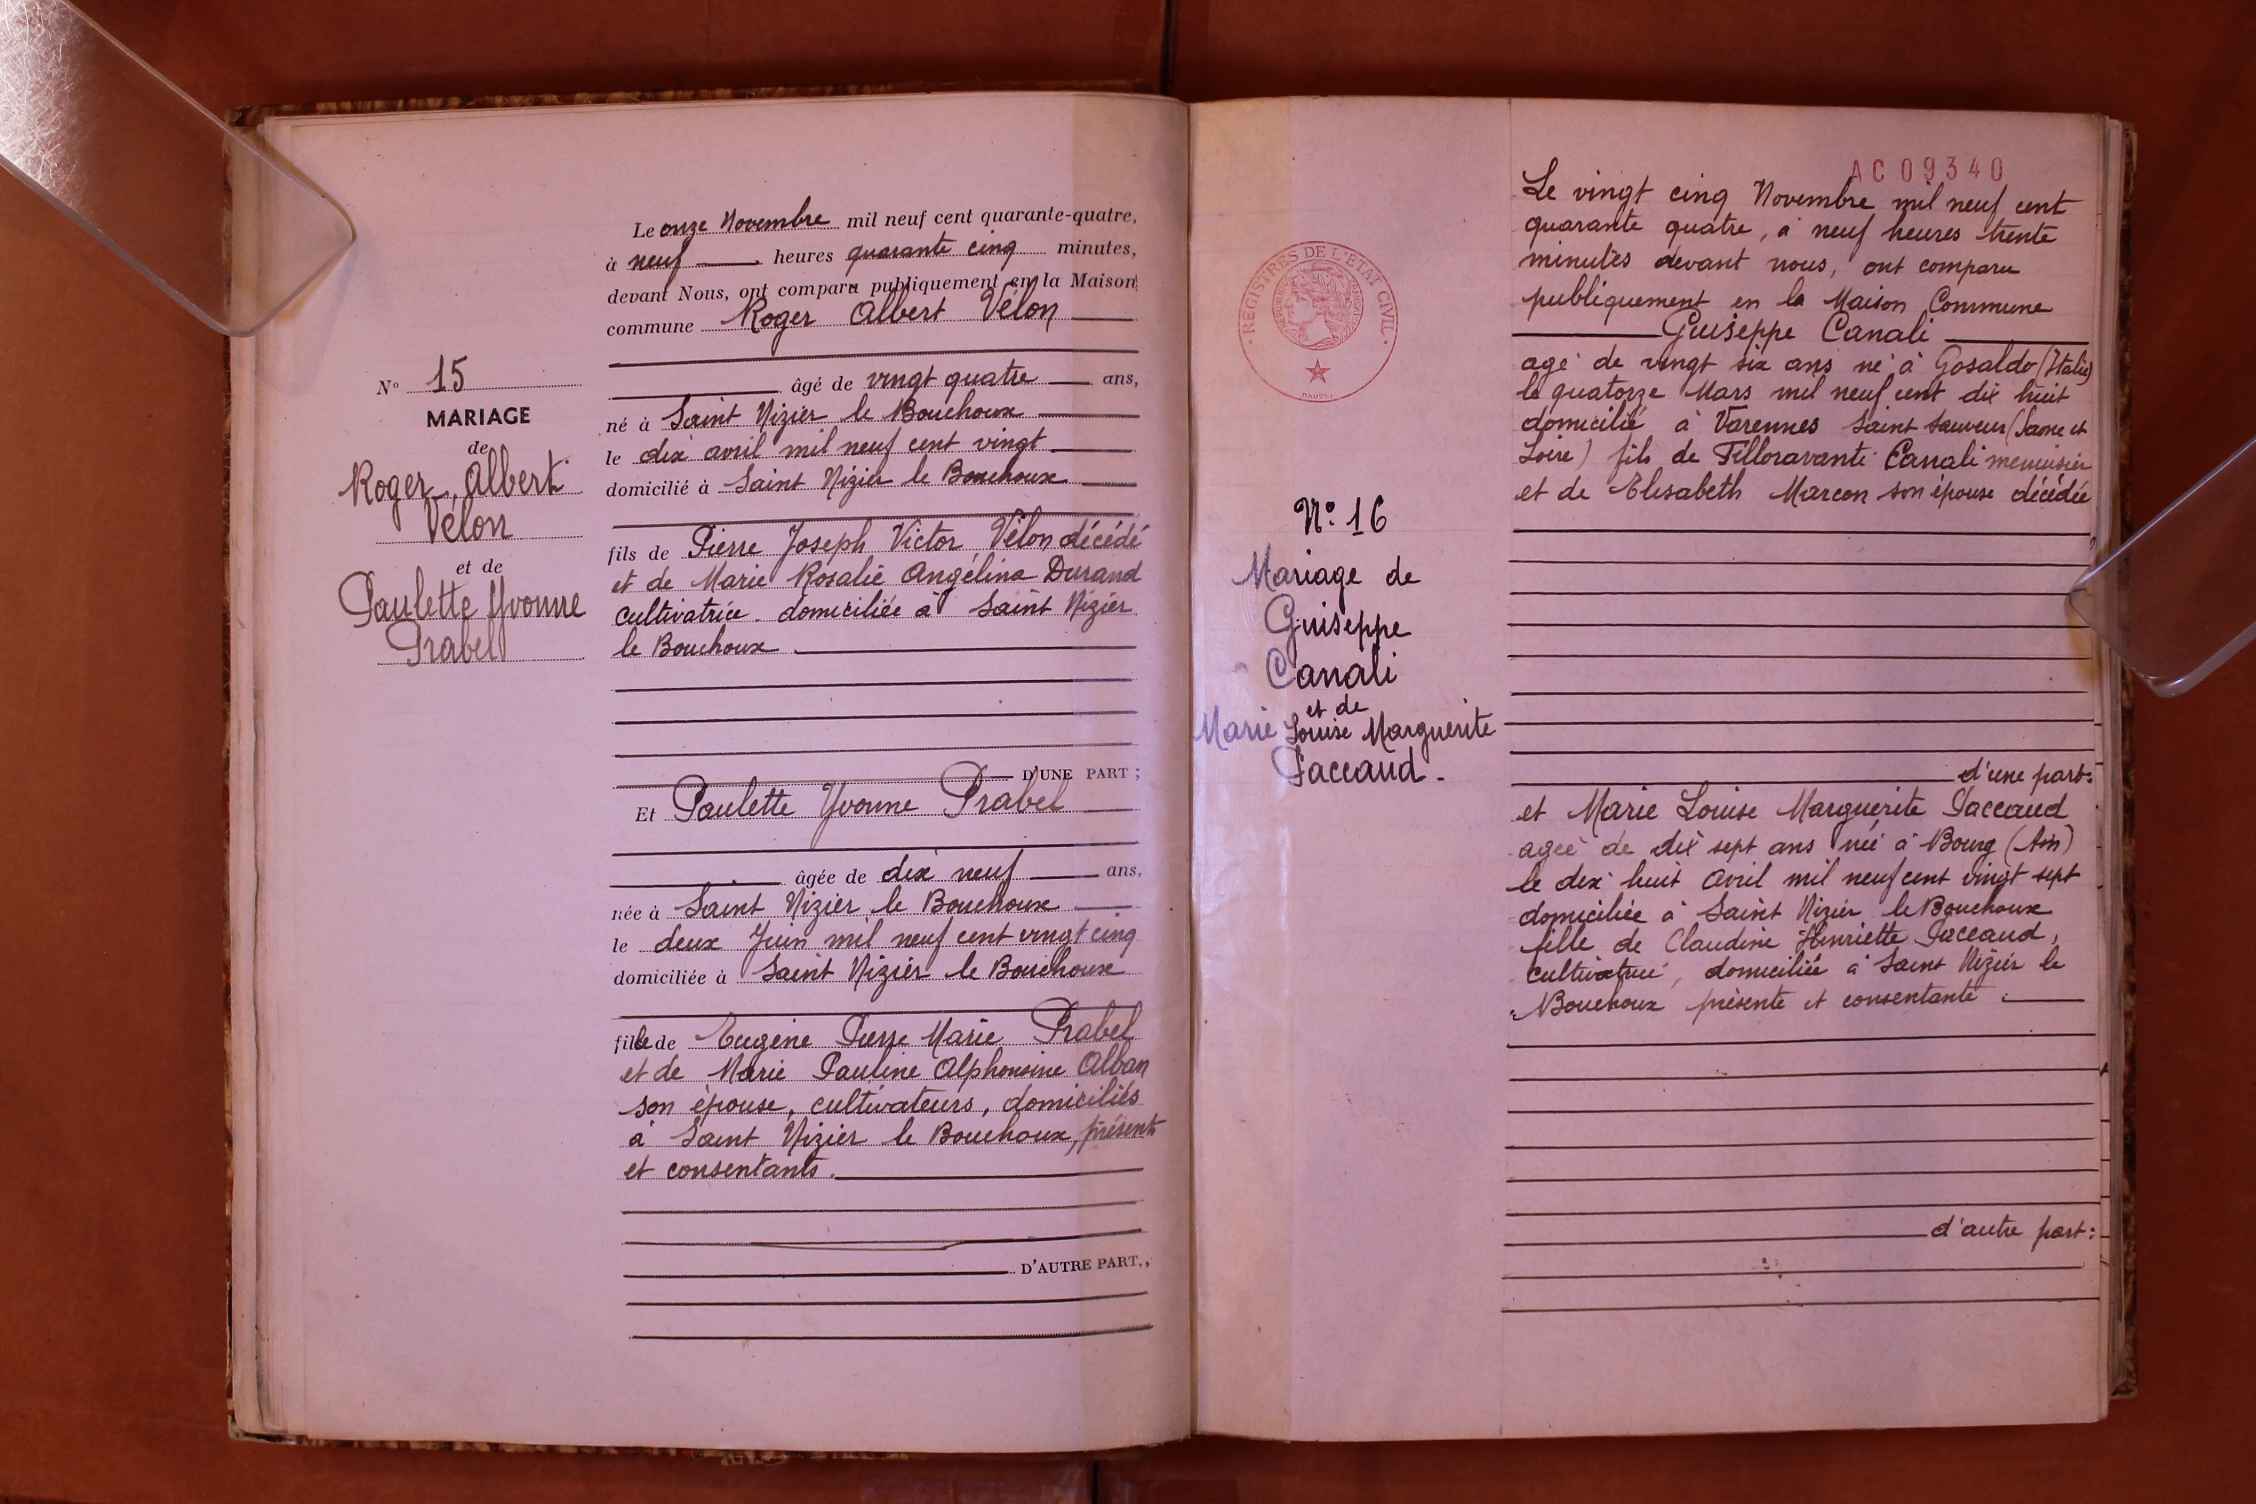 Le onze Novembre mil neuf cent quarante-quatre,
à neuf heures quarante cinq minutes,
devant Nous, ont comparu publiquement en la Maison
commune Roger Albert Vélon
âgé de vingt quatre ans,
né à Saint Nizier le Bouchoux
le dix avril mil neuf cent vingt
domicilié à Saint Nizier le Bouchoux
fils de Pierre Joseph Victor Vélon décédé
et de Marie Rosalie Angélina Durand
cultivatrice domiciliée à Saint Nizier
le Bouchoux
D'UNE PART ;
Et Paulette Yvonne Prabel
âgée de dix neuf ans,
née à Saint Nizier le Bouchoux
le deux Juin mil neuf cent vingt cinq
domiciliée à Saint Nizier le Bouchoux
fille de Eugène Pierre Marie Prabel
et de Marie Pauline Alphonsine Alban
son épouse, cultivateurs, domiciliés
à Saint Nizier le Bouchoux, présents
et consentants.
D'AUTRE PART.,
N° 15
MARIAGE
de
Roger, Albert
Vélon
et de
Paulette Yvonne
Prabel
AC 09340
Le vingt cinq Novembre mil neuf cent
quarante quatre, à neuf heures trente
minutes devant nous, ont comparu
publiquement en la Maison Commune
Guiseppe Canali
agé de vingt six ans né à Gosaldo (Italie)
le quatorze Mars mil neuf cent dix huit
domicilié à Varennes Saint Sauveur (Saone et
Loire) fils de Filloravante Canali menuisier
et de Elisabeth Marcon son épouse décédée
d'une part:
et Marie Louise Marguerite Paccaud
agée de dix sept ans née à Bourg (Ain)
le dix huit Avril mil neuf cent vingt sept
domiciliée à Saint Nizier le Bouchoux
fille de Claudine Henriette Paccaud,
cultivatrice, domiciliée à Saint Nizier le
Bouchoux présente et consentante.
d'autre part:
REGISTRES DE L'ETAT CIVIL
N° 16
Mariage de
Guiseppe
Canali
et de
Marie Louise Marguerite
Paccaud.